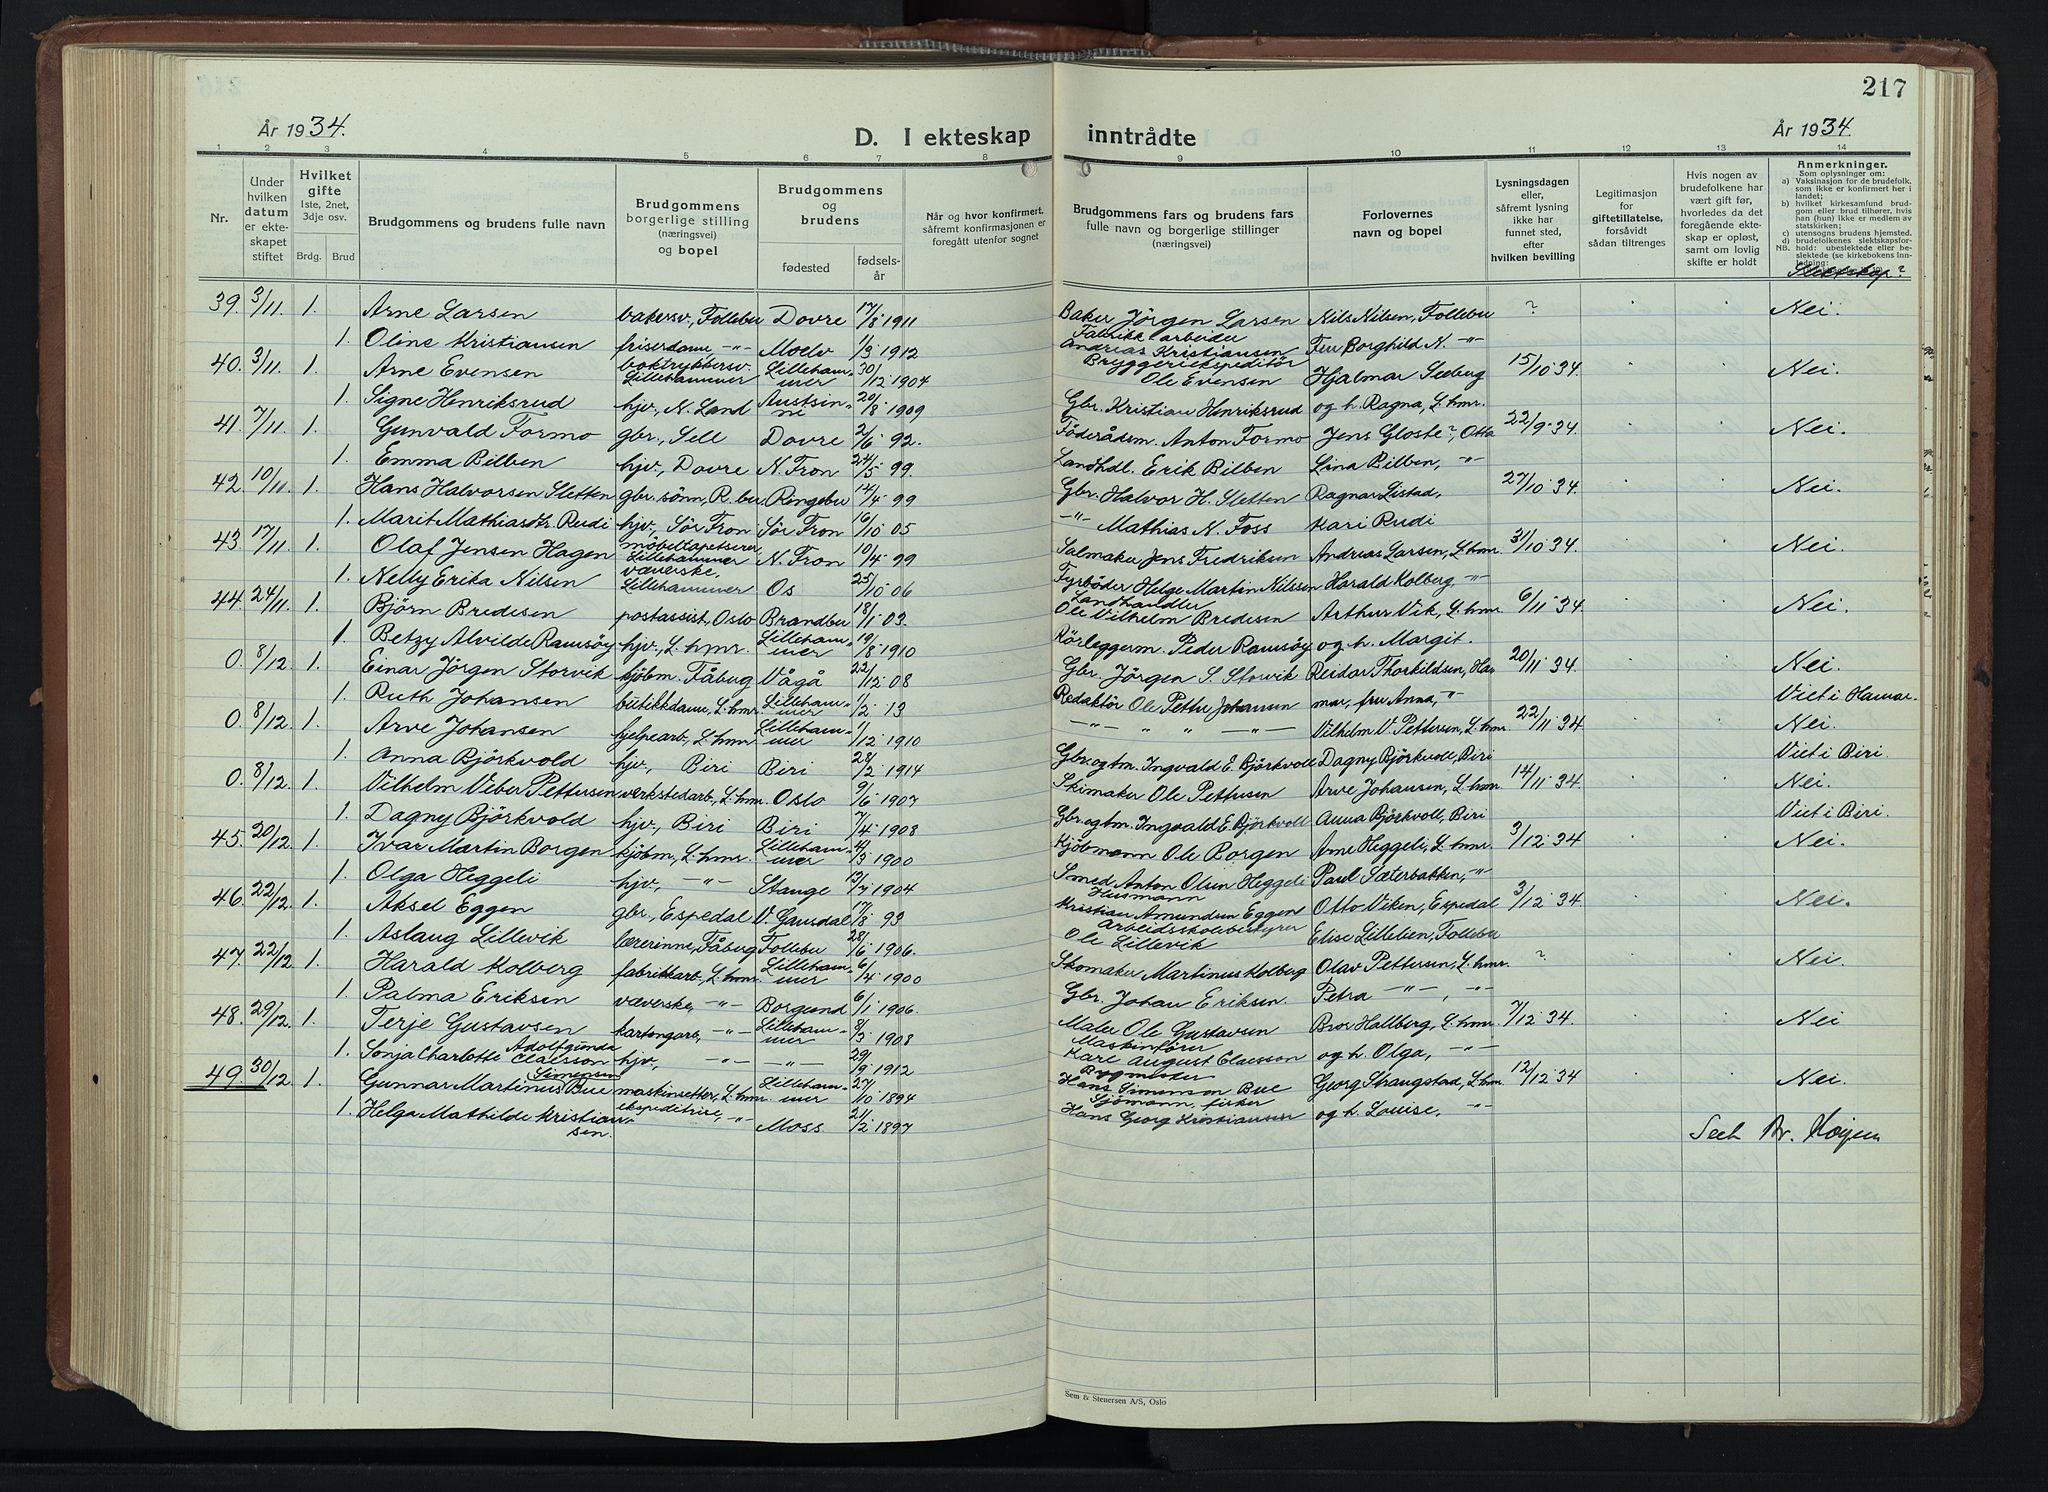 217
År 1934.
D. I ekteskap inntrådte
År 1934.
1 2 3 4 5 6 7 8 9 10 11 12 13 14
Nr.
Under hvilken datum er ekteskapet stiftet
Hvilket gifte
1ste, 2net, 3dje osv.
Brdg. Brud
Brudgommens og brudens fulle navn
Brudgommens borgerlige stilling (næringsvei) og bopel
Brudgommens og brudens
fødested
fødselsår
Når og hvor konfirmert, såfremt konfirmasjonen er foregått utenfor sognet
Brudgommens fars og brudens fars fulle navn og borgerlige stillinger (næringsvei)
Forlovernes navn og bopel
Lysningsdagen eller, såfremt lysning ikke har funnet sted, efter hvilken bevilling
Legitimasjon for giftetillatelse, forsåvidt sådan tiltrenges
Hvis nogen av brudefolkene har vært gift før, hvorledes da det foregående ekteskap er opløst, samt om lovlig skifte er holdt
Anmerkninger.
Som oplysninger om:
a) Vaksinasjon for de brudefolk, som ikke er konfirmert her i landet;
b) hvilket kirkesamfund brudgom eller brud tilhører, hvis han (hun) ikke er medlem av statskirken;
c) utensogns brudens hjemsted.
d) brudefolkenes slektskapsforhold: ubeslektede eller beslektede (se kirkebokens Innledning:
Slektskap?
39. 3/11. 1. Arne Larsen bakersv., Follebu Dovre 17/8 1911 Baker Jörgen Larsen Nils Nilsen, Follebu ? Nei.
1. Oline Kristiansen friserdame -"- Moelv 1/3 1912 Fabrikkarbeider Andreas Kristiansen Fru Borghild N. -"-
40. 3/11. 1. Arne Evensen boktrykkersv. Lillehammer Lillehammer 30/12 1904 Bryggeriekspeditör Ole Evensen Hjalmar Seeberg 15/10 34. Nei.
1. Signe Henriksrud hjv., N. Land Austsinni 20/8 1909 Gbr. Kristian Henriksrud og h. Ragna, L.hmr.
41. 7/11. 1. Gunvald Formo gbr., Sell Dovre 2/6 92. Föderådsm. Anton Formo Jens Gloste?, Otta 22/9 34. Nei.
1. Emma Bilben hjv., Dovre N. Fron 24/5 99 Landhdl. Erik Bilben Lina Bilben, -"-
42. 10/11. 1. Hans Halvorsen Sletten gbr. sönn, R.bu Ringebu 14/4 99 Gbr. Halvor H. Sletten Ragnar Listad, 27/10 34. Nei.
1. Marit Mathiasdtr. Rudi hjv., Sör Fron Sör Fron 16/10 05 -"- Mathias N. Foss Kari Rudi
43. 17/11. 1. Olaf Jensen Hagen möbeltapetserer Lillehammer N. Fron 10/4 99 Salmaker Jens Fredriksen Andreas Larsen, L.hmr. 31/10 34. Nei.
1. Nelly Erika Nilsen væverske, Lillehammer Os 25/10 06 Fyrböder Helge Martin Nilssen Harald Kolberg -"-
44. 24/11. 1. Björn Bredesen postassist., Oslo Brandbu 18/1 03. Landhandler Ole Vilhelm Bredesen Arthur Vik, L.hmr. 6/11 34. Nei.
1. Betzy Alvilde Ramsöy hjv., L.hmr. Lillehammer 19/8 1910 Rörleggerm. Peder Ramsöy og h. Margit.
0. 8/12. 1. Einar Jörgen Storvik kjöbm. Fåberg Vågå 22/12 08 Gbr. Jörgen S. Storvik Reidar Thorkildsen, Ha- 20/11 34. Nei.
1. Ruth Johansen butikkdame, L.hmr. Lillehammer 11/2 13 Redaktör Ole Petter Johansen mar, fru Anna, -"- Viet i Hamar.
0. 8/12. 1. Arve Johansen hjelpearb., L.hmr. Lillehammer 1/12 1910 -"- " " -"- Vilhelm V. Pettersen, L.hmr. 22/11 34. Nei.
1. Anna Björkvold hjv., Biri Biri 28/2 1914 Gbr. og tm. Ingvald E. Björkvoll Dagny Björkvoll, Biri Viet i Biri.
0. 8/12. 1. Vilhelm Veber Pettersen verkstedarb., L.hmr. Oslo 9/6 1907 Skimaker Ole Pettersen Arve Johansen, L.hmr. 14/11 34. Nei.
1. Dagny Björkvold hjv., Biri Biri 7/4 1908 Gbr. og tm. Ingvald E. Björkvoll Anna Björkvoll, Biri Viet i Biri.
45. 20/12. 1. Ivar Martin Borgen kjöbm., L.hmr. Lillehammer 4/3 1900 Kjöbmann Ole Borgen Arne Heggeli, L.hmr. 3/12 34 Nei.
1. Olga Heggeli hjv., -"- Stange 3/7 1904 Smed Anton Olsen Heggeli Paul Sæterbakken, -"-
46. 22/12. 1. Aksel Eggen gbr., Espedal V. Gausdal 17/8 93 Husmann Kristian Amundsen Eggen Otto Viken, Espedal 3/12 34. Nei.
1. Aslaug Lillevik lærerinne, Fåberg Follebu 28/6 1906. Arbeidsskolebestyrer Ole Lillevik Elise Lillelien, Follebu
47. 22/12. 1. Harald Kolberg fabrikkarb., L.hmr. Lillehammer 6/4 1900 Skomaker Martinus Kolberg Olav Pettersen, L.hmr. ? Nei.
1. Palma Eriksen væverske, -"- Borgund 6/1 1906. Gbr. Johan Eriksen. Petra -"-, -"-
48. 29/12. 1. Terje Gustavsen kartongarb., -"- Lillehammer 8/3 1908 Maler Ole Gustavsen Bror Hallberg, L.hmr. 7/12 34. Nei
1. Sonja Charlotte Adolfgunda Claesson hjv., -"- -"- 29/9 1912 Maskinförer Karl August Claesson og h. Olga, -"-
49. 30/12. 1. Gunnar Martinus Simensen Bue maskinsetter, L.hmr. Lillehammer 27/10 1894 Bygmester Hans Simenson Bue Georg Strangstad, L.hmr. 12/12 34 Nei.
1. Helga Mathilde Kristiansen. ekspeditrise, -"- Moss 21/2 1897 Sjömann, fisker Hans Georg Kristiansen og h. Louise, -"-
Sett Br. Moijen
Sem & Stenersen A/S, Oslo